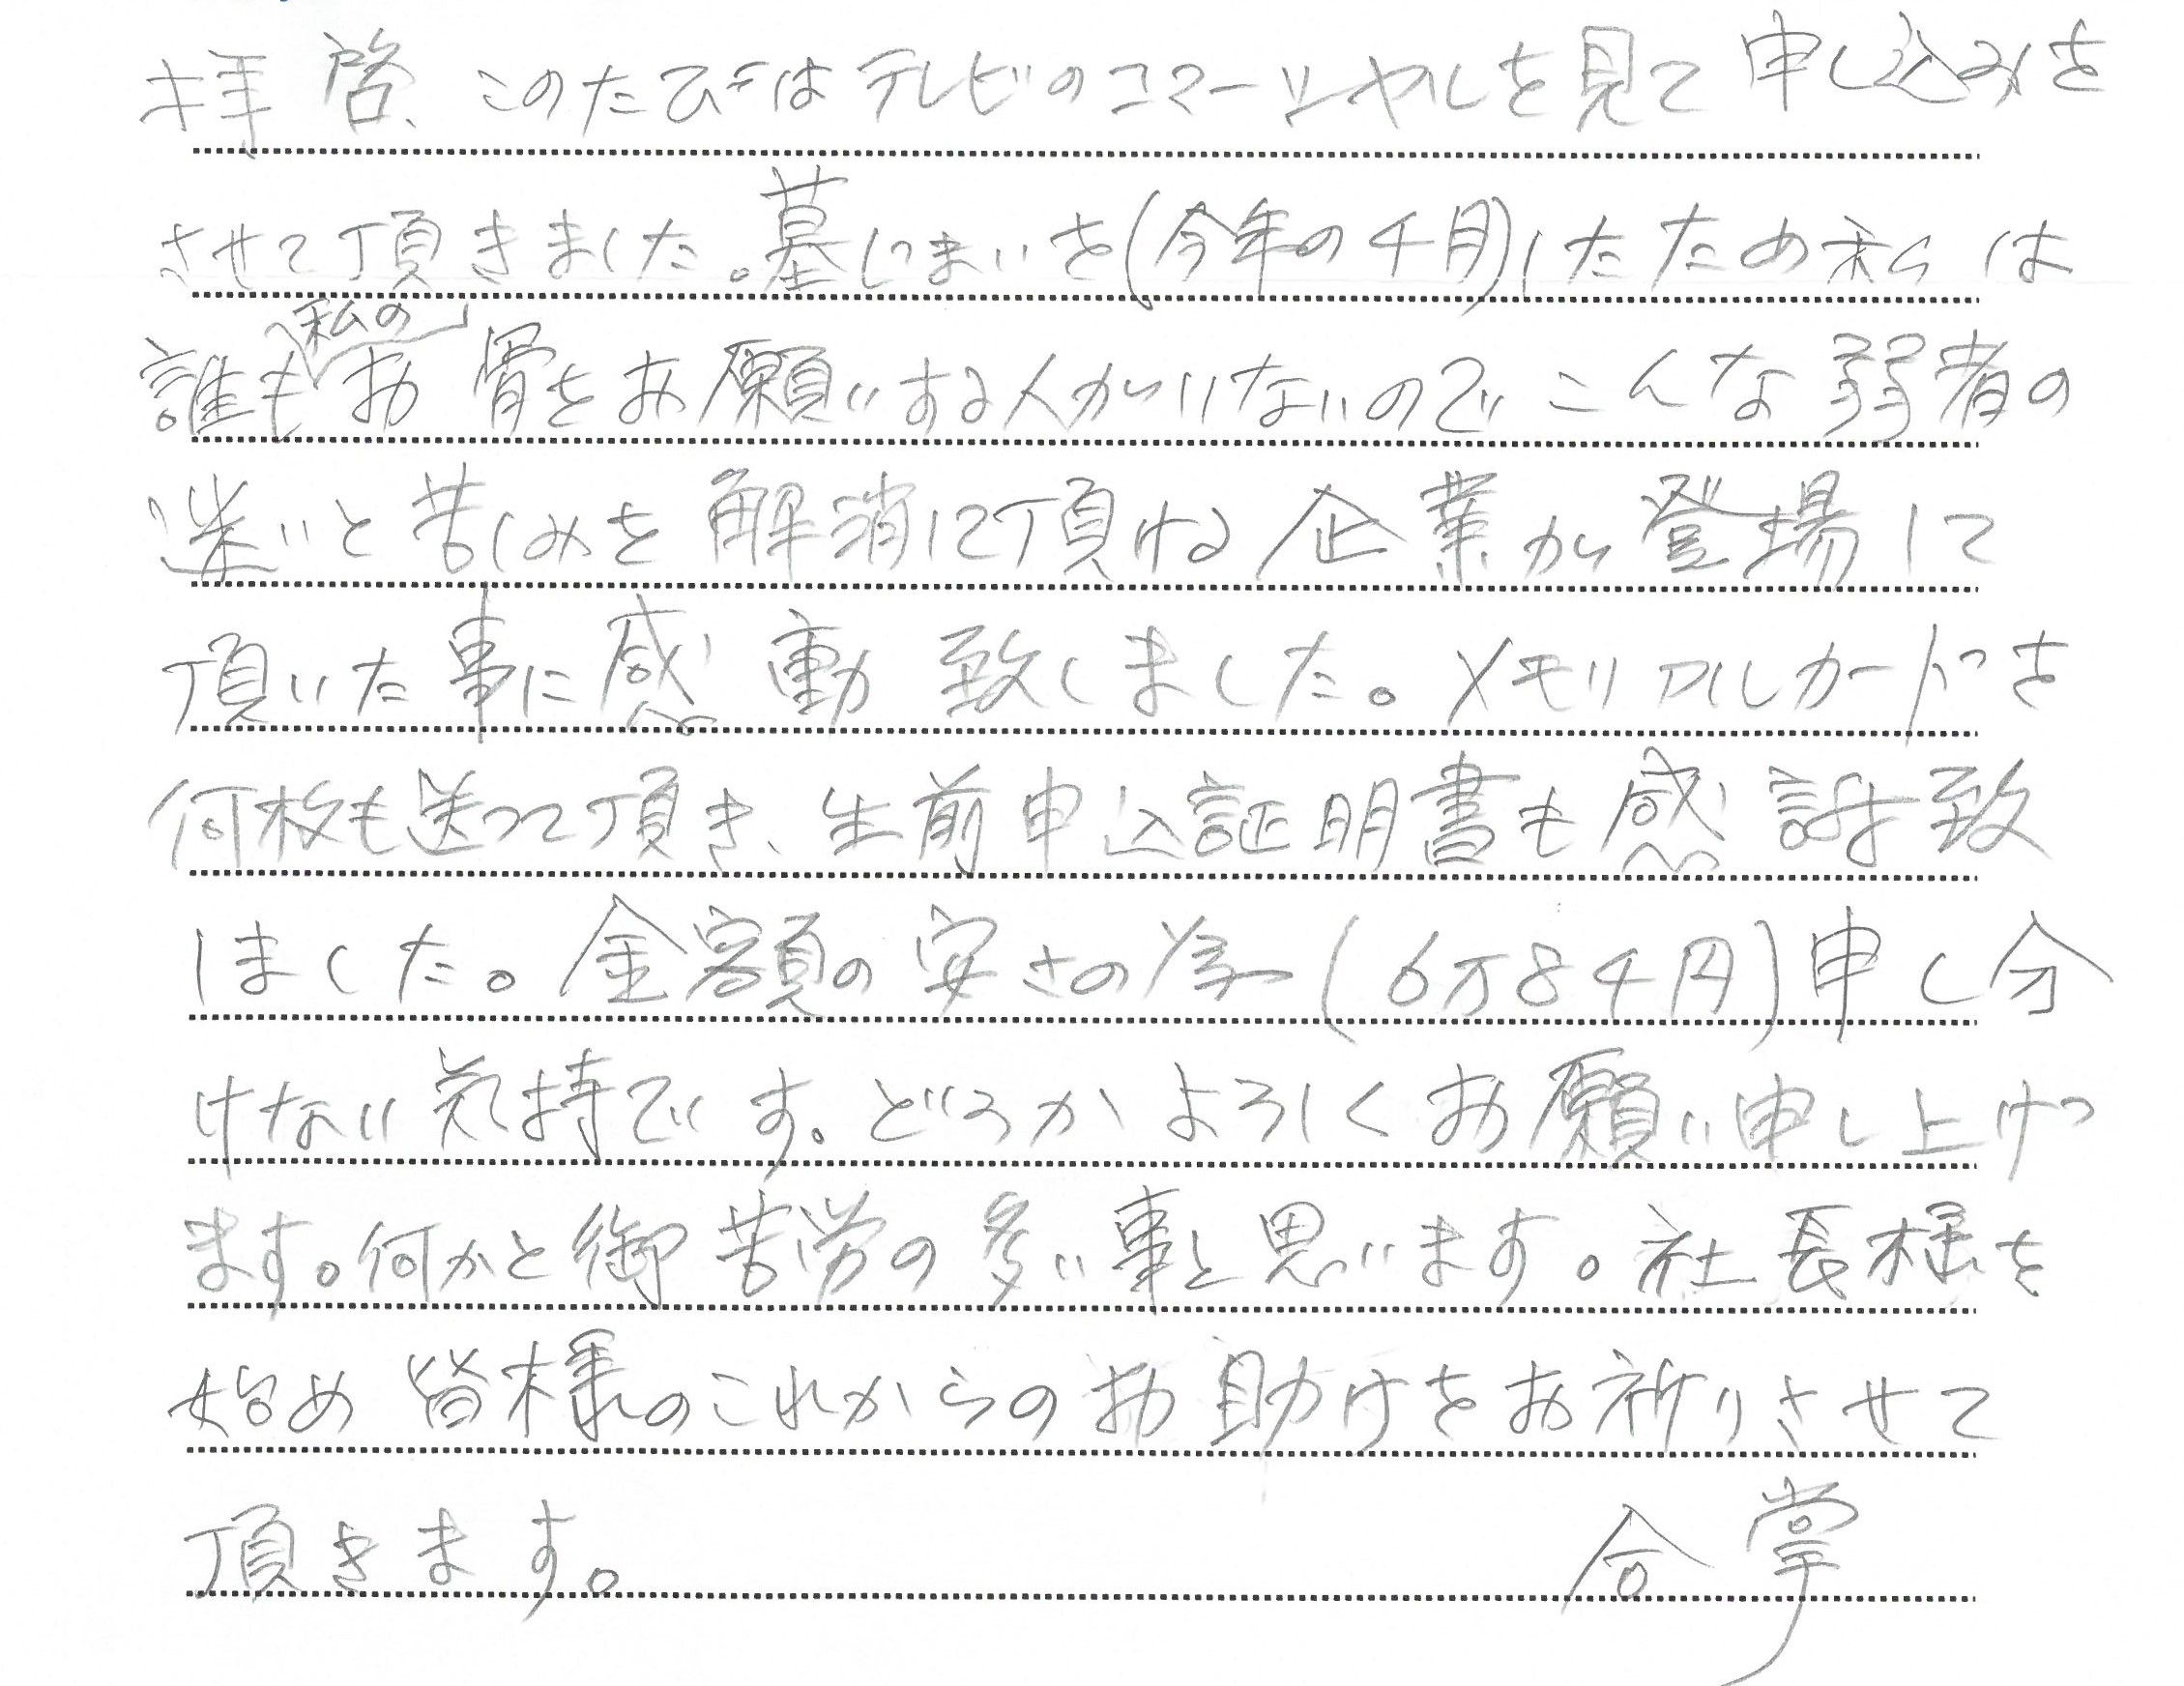 拝啓、このたびはテレビのコマーシャルを見て申し込みを
させて頂きました。墓じまいを(今年の4月)したため私は
誰も私のお骨をお願いする人がいないのでこんな弱者の
迷いと苦しみを解消して頂ける企業が登場して
頂いた事に感動致しました。メモリアルカードを
何枚も送って頂き、生前申込証明書も感謝致
しました。金額の安さの為(6万84円)申し分
けない気持です。どうかよろしくお願い申し上げ
ます。何かと御苦労の多い事と思います。社長様を
始め皆様のこれからのお助けをお祈りさせて
頂きます。 合掌